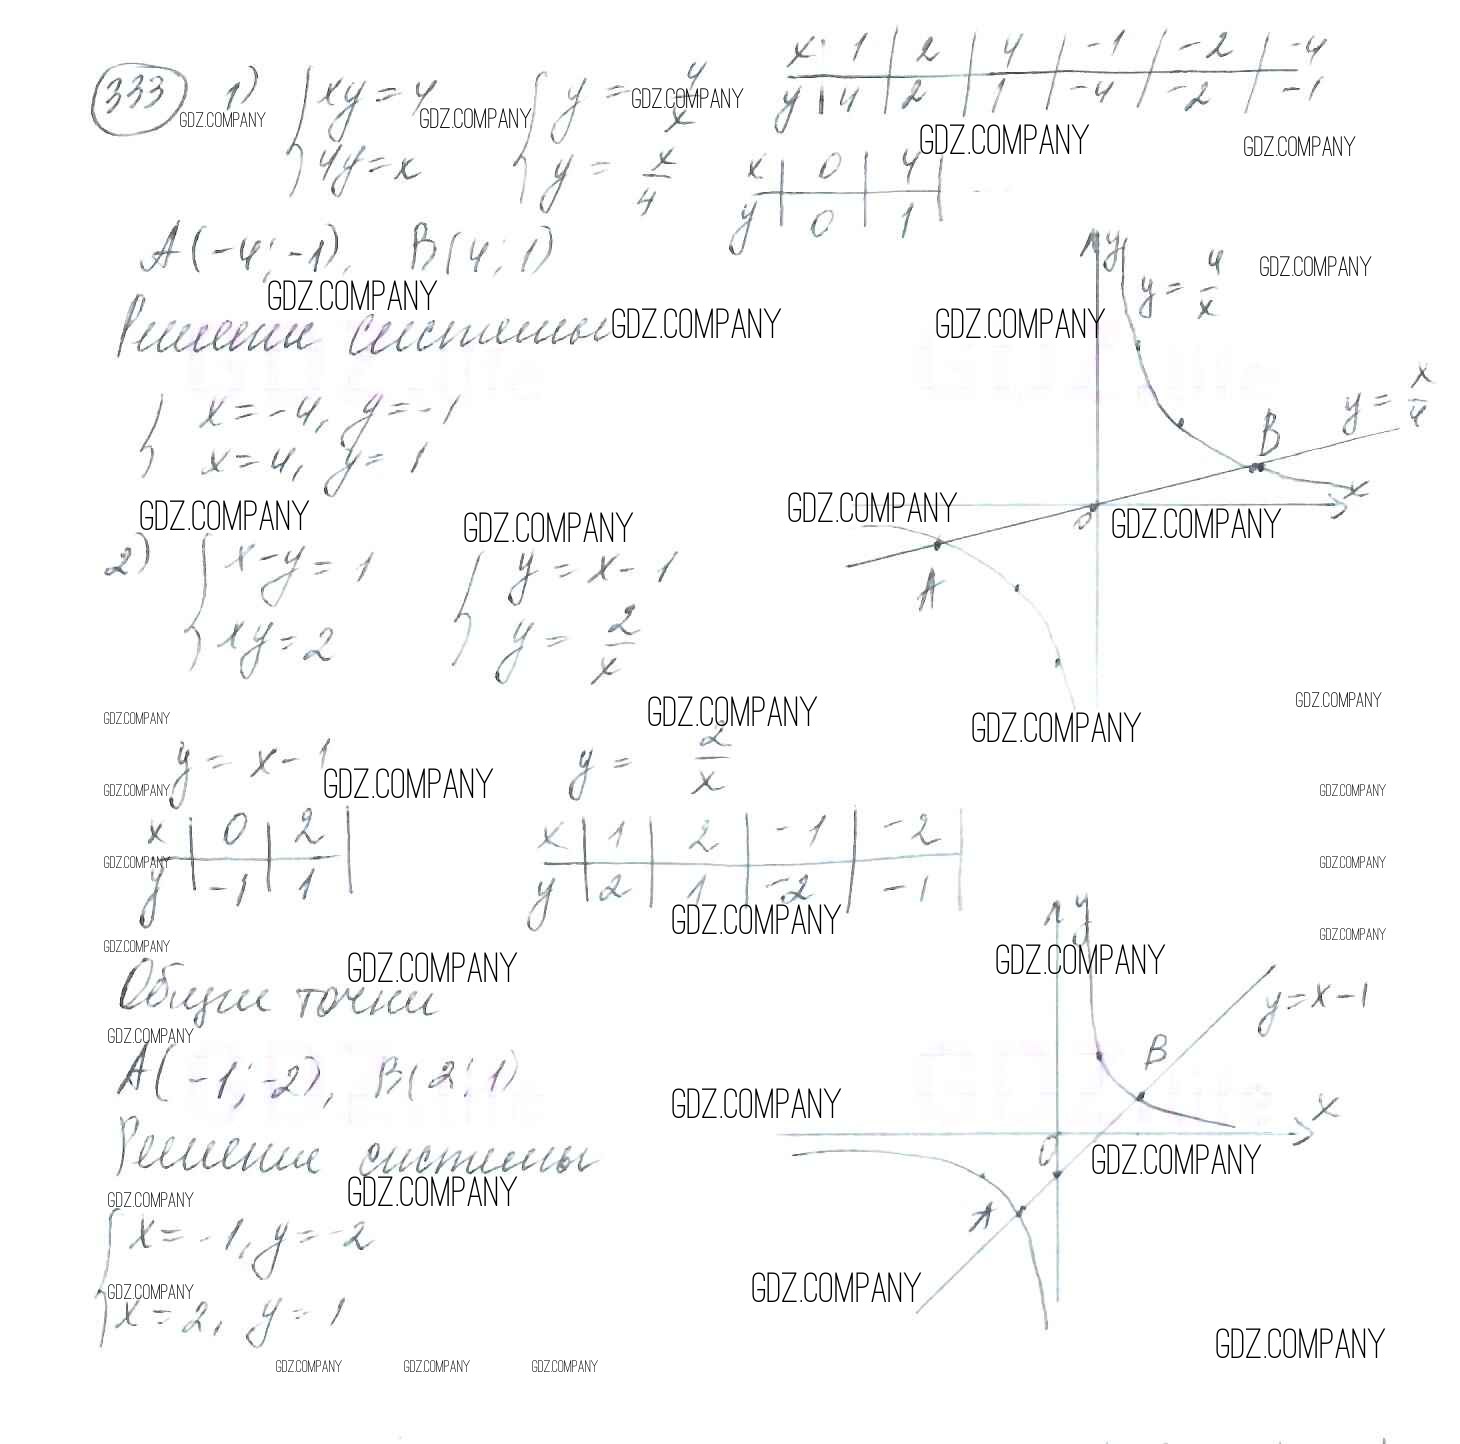 333 1) { xy = 4 { y = 4/x x 1 | 2 | 4 | -1 | -2 | -4
y | 4 | 2 | 1 | -4 | -2 | -1
4y = x y = x/4 x | 0 | 4
y | 0 | 1
A(-4; -1), B(4; 1)
Решение системы
{ x = -4, y = -1
x = 4, y = 1
y
y = 4/x
y = x/4
B
x
0
A
2) { x - y = 1 { y = x - 1
xy = 2 y = 2/x
y = x - 1 y = 2/x
x | 0 | 2 | x | 1 | 2 | -1 | -2
y | -1 | 1 | y | 2 | 1 | -2 | -1
Общие точки
A(-1; -2), B(2; 1)
Решение системы
{ x = -1, y = -2
x = 2, y = 1
y
y = x - 1
B
x
0
A
GDZ.COMPANY